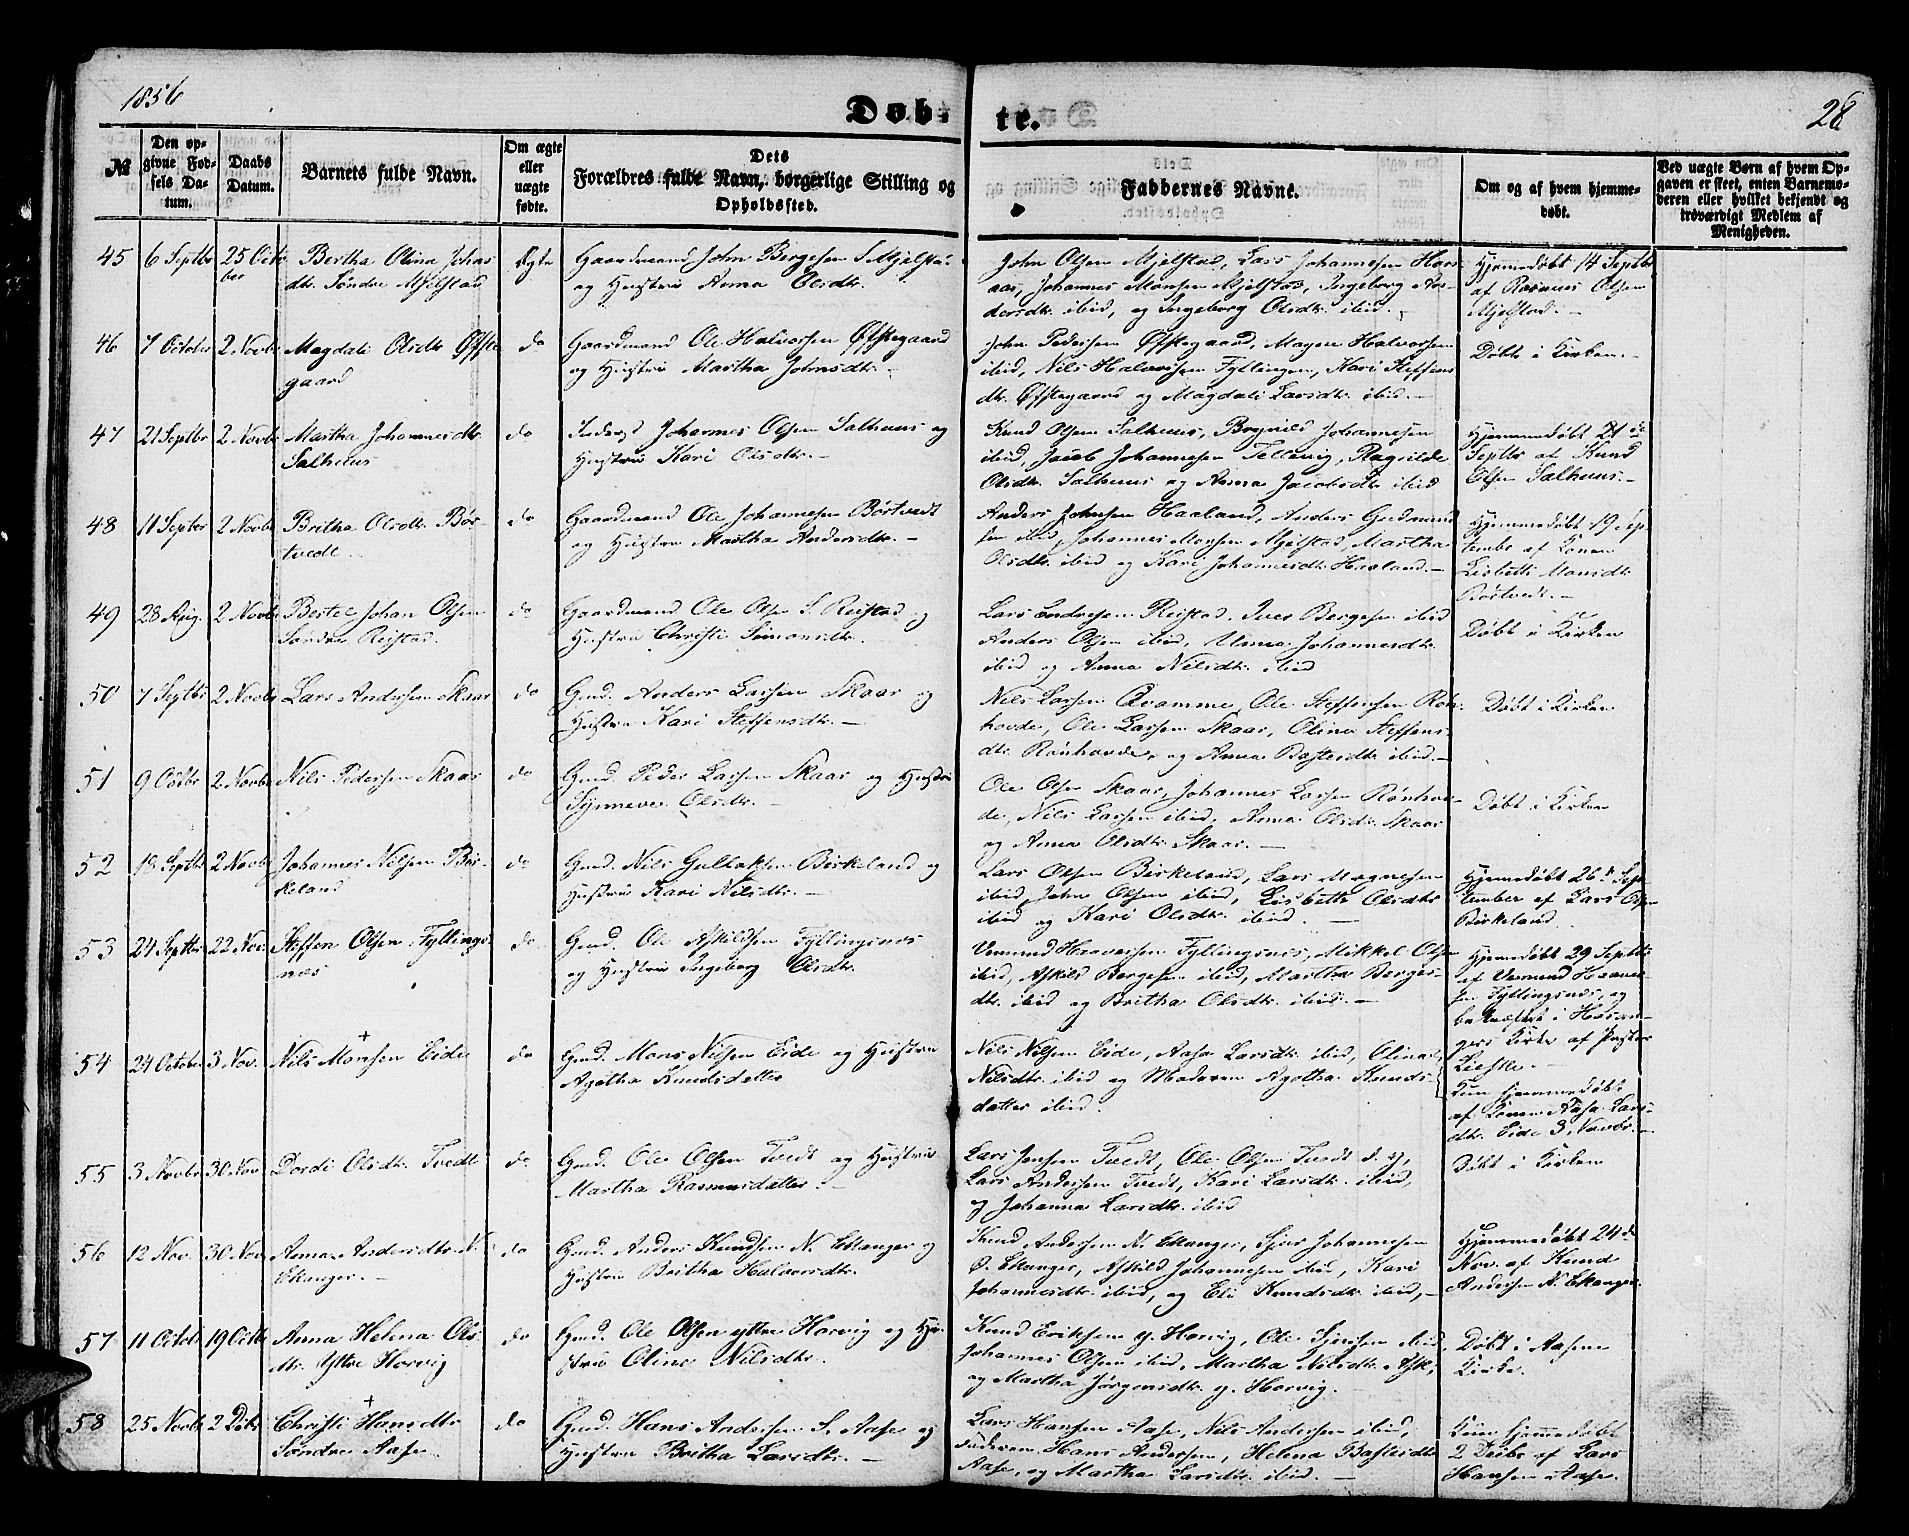 1856
Døbte.
28
№
Den opgivne Fødsels Datum.
Daabs Datum.
Barnets fulde Navn.
Om ægte eller uægte fødte.
Dets Forældres fulde Navn, borgerlige Stilling og Opholdssted.
Faddernes Navne.
Om og af hvem hjemmedøbt.
Ved uægte Børn af hvem Opgaven er skeet, enten Barnemoderen eller hvilket bekjendt og troværdigt Medlem af Menigheden.
45 6 Septbr 25 Octo Bertha Olina Johns Ægte Gaardmand John Bergesen S. Mjelstad John Olsen Mjelstad, Lars Johannesen Hjemmedøbt 14 Septbr
ber dtr. Søndre Mjelstad og Hustru Anna Olsdtr. Johannes Monsen Mjelstad, Ingeborg An- af Rasmus Olsen
dersdtr. ibid, og Ingeborg Olsdtr. ibid. Mjelstad.-
46 7 October 2 Novbr Magdali Olsdtr Øfste do Gaardmand Ole Halvorsen Øfstegaard John Pedersen Øfstegaard, Magne Halvorsen Døbt i Kirken.-
gaard og Hustru Martha Johnsdtr.- ibid, Nils Halvorsen Fyllingen, Kari Steffens
dtr. Øfstegaard og Magdali Larsdtr. ibid.-
47 21 Septbr 2 Novbr Martha Johannesdtr. do Inderst Johannes Olsen Salhuus og Knud Olsen Salhuus, Brynild Johannesen Hjemmedøbt 21de
Salhuus Hustru Kari Olsdtr.- ibid, Jacob Johannesen Tellevig, Ragnilde Septbr af Knud
Olsdtr. Salhuus og Anna Jacobsdtr ibid Olsen Salhuus.-
48 11 Septbr 2 Novbr Britha Olsdtr. Bør- do Gaardmand Ole Johannesen Børtvedt Anders Johnsen Haaland, Anders Gudmund Hjemmedøbt 19 Sep-
tvedt og Hustru Martha Andersdtr.- sen ibid, Johannes Monsen Mjelstad, Martha tember af Konen
Olsdtr. ibid og Kari Johannesdtr. Haaland.- Lisbeth Monsdtr
Børtvedt.-
49 28 Aug. 2 Novbr Bertel Johan Olsen do Gaardmand Ole Olsen S. Reistad og Lars Endresen Reistad, Iver Bergesen ibid Døbt i Kirken
Søndre Reistad. Hustru Christi Simonsdtr. Anders Olsen ibid, Johannesdtr.
ibid og Anna Nilsdtr. ibid
50 7 Septbr 2 Novbr Lars Andersen Skaar do Gmd. Anders Larsen Skaar og Nils Larsen Qvamme, Ole Steffensen Røn- Døbt i Kirken
Hustru Kari Steffensdtr.- hovde, Ole Larsen Skaar, Olina Steffens
dtr. Rønhovde, og Anna Bastesdtr. ibid.-
51 9 Octbr 2 Novbr Nils Pedersen Skaar do Gmd. Peder Larsen Skaar og Hustru Ole Olsen Skaar, Johannes Larsen Rønhov- Døbt i Kirken
Synneve Olsdtr.- de, Nils Larsen ibid, Anna Olsdtr. Skaar
og Anna Olsdtr. Skaar.-
52 18 Septbr 2 Novbr Johannes Nilsen Bir- do Gmd. Nils Gullaksen Birkeland og Lars Olsen Birkeland, Lars Magnesen Hjemmedøbt 26de Sep-
keland Hustru Kari Nilsdtr.- ibid, John Olsen ibid, Lisbeth Olsdtr. tember af Lars Olsen
ibid og Kari Olsdtr. ibid.- Birkeland.
53 24 Septbr 22 Nov. Steffen Olsen Fyllings do Gmd. Ole Askildsen Fyllingsnæs Vemund Haaversen Fyllingsnæs, Mikkel Olsen Hjemmedøbt 29 Septbr
næs og Hustru Ingeborg Olsdtr. ibid, Askild Bergesen ibid, Martha Berges- af Vemund Haaver-
dtr. ibid og Britha Olsdtr. ibid.- sen Fyllingsnæs, og
bekræftet i Hosan-
gers Kirke af Pastor
54 24 October 3 Nov. Nils Monsen + Eide do Gmd. Mons Nilsen Eide og Hustru Nils Nilsen Eide, Aase Larsdtr. ibid, Olina
Agatha Knudsdatter Nilsdtr. ibid og Moderen Agatha Knuds- Kun hjemmedøbt
datter ibid. af Konen Aase Lars-
dtr. Eide 3 Novbr.-
55 3 Novbr 30 Nov Dordi Olsdtr. Tvedt do Gmd. Ole Olsen Tvedt og Hustru Lars Jensen Tvedt, Ole Olsen Tvedt d. y, Døbt i Kirken
Martha Rasmusdatter.- Lars Andersen Tvedt, Kari Larsdtr. ibid,
og Johanna Larsdtr. ibid
56 12 Nov. 30 Nov Anna Andersdtr. N. do Gmd. Anders Knudsen N. Ekanger og Knud Andersen N. Ekanger, Sjur Johannesen Hjemmedøbt 24de
Ekanger.- Hustru Britha Halvorsdtr. Ø. Ekanger, Askild Johannesen ibid, Kari Nov. af Knud
Johannesdtr. ibid, og Eli Knudsdtr. ibid,- Andersen N. Ekanger
57 11 Octob 19 Octbr Anna Helena Ols do Gmd. Ole Olsen yttre Horvig og Hu- Knud Eriksen y. Horvig, Ole ibid, Døbt i Aasene
dtr. Yttre Horvig stru Oline Nilsdtr. Johannes Olsen ibid, Martha Nilsdtr. Ask, Kirke.
og Martha Jørgensdtr. y. Horvig.
58 25 Novbr 2 Debr Christi + Hansdtr. do Gmd. Hans Andersen S. Aase og Lars Hansen Aase, Nils Andersen ibid, Kun hjemmedøbt
Søndre Aase Hustru Britha Larsdtr.- Faderen Hans Andersen, Helena Bastesdtr 2 Decbr af Lars
Aase, og Martha Larsdtr. ibid.- Hansen Aase.